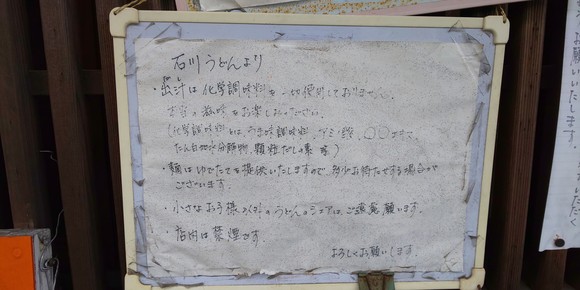 石川うどんより
・出汁は化学調味料を一切使用しておりません。
本当の美味をお楽しみください。
(化学調味料とは、うま味調味料、アミノ酸、〇〇エキス、
たん白加水分解物、顆粒だしの素 等)
・麺はゆでたてを提供いたしますので、多少お待たせする場合が
ございます。
・小さなお子様以外のうどんのシェアは、ご遠慮願います。
・店内は禁煙です。
よろしくお願いします。
お願いいたします。